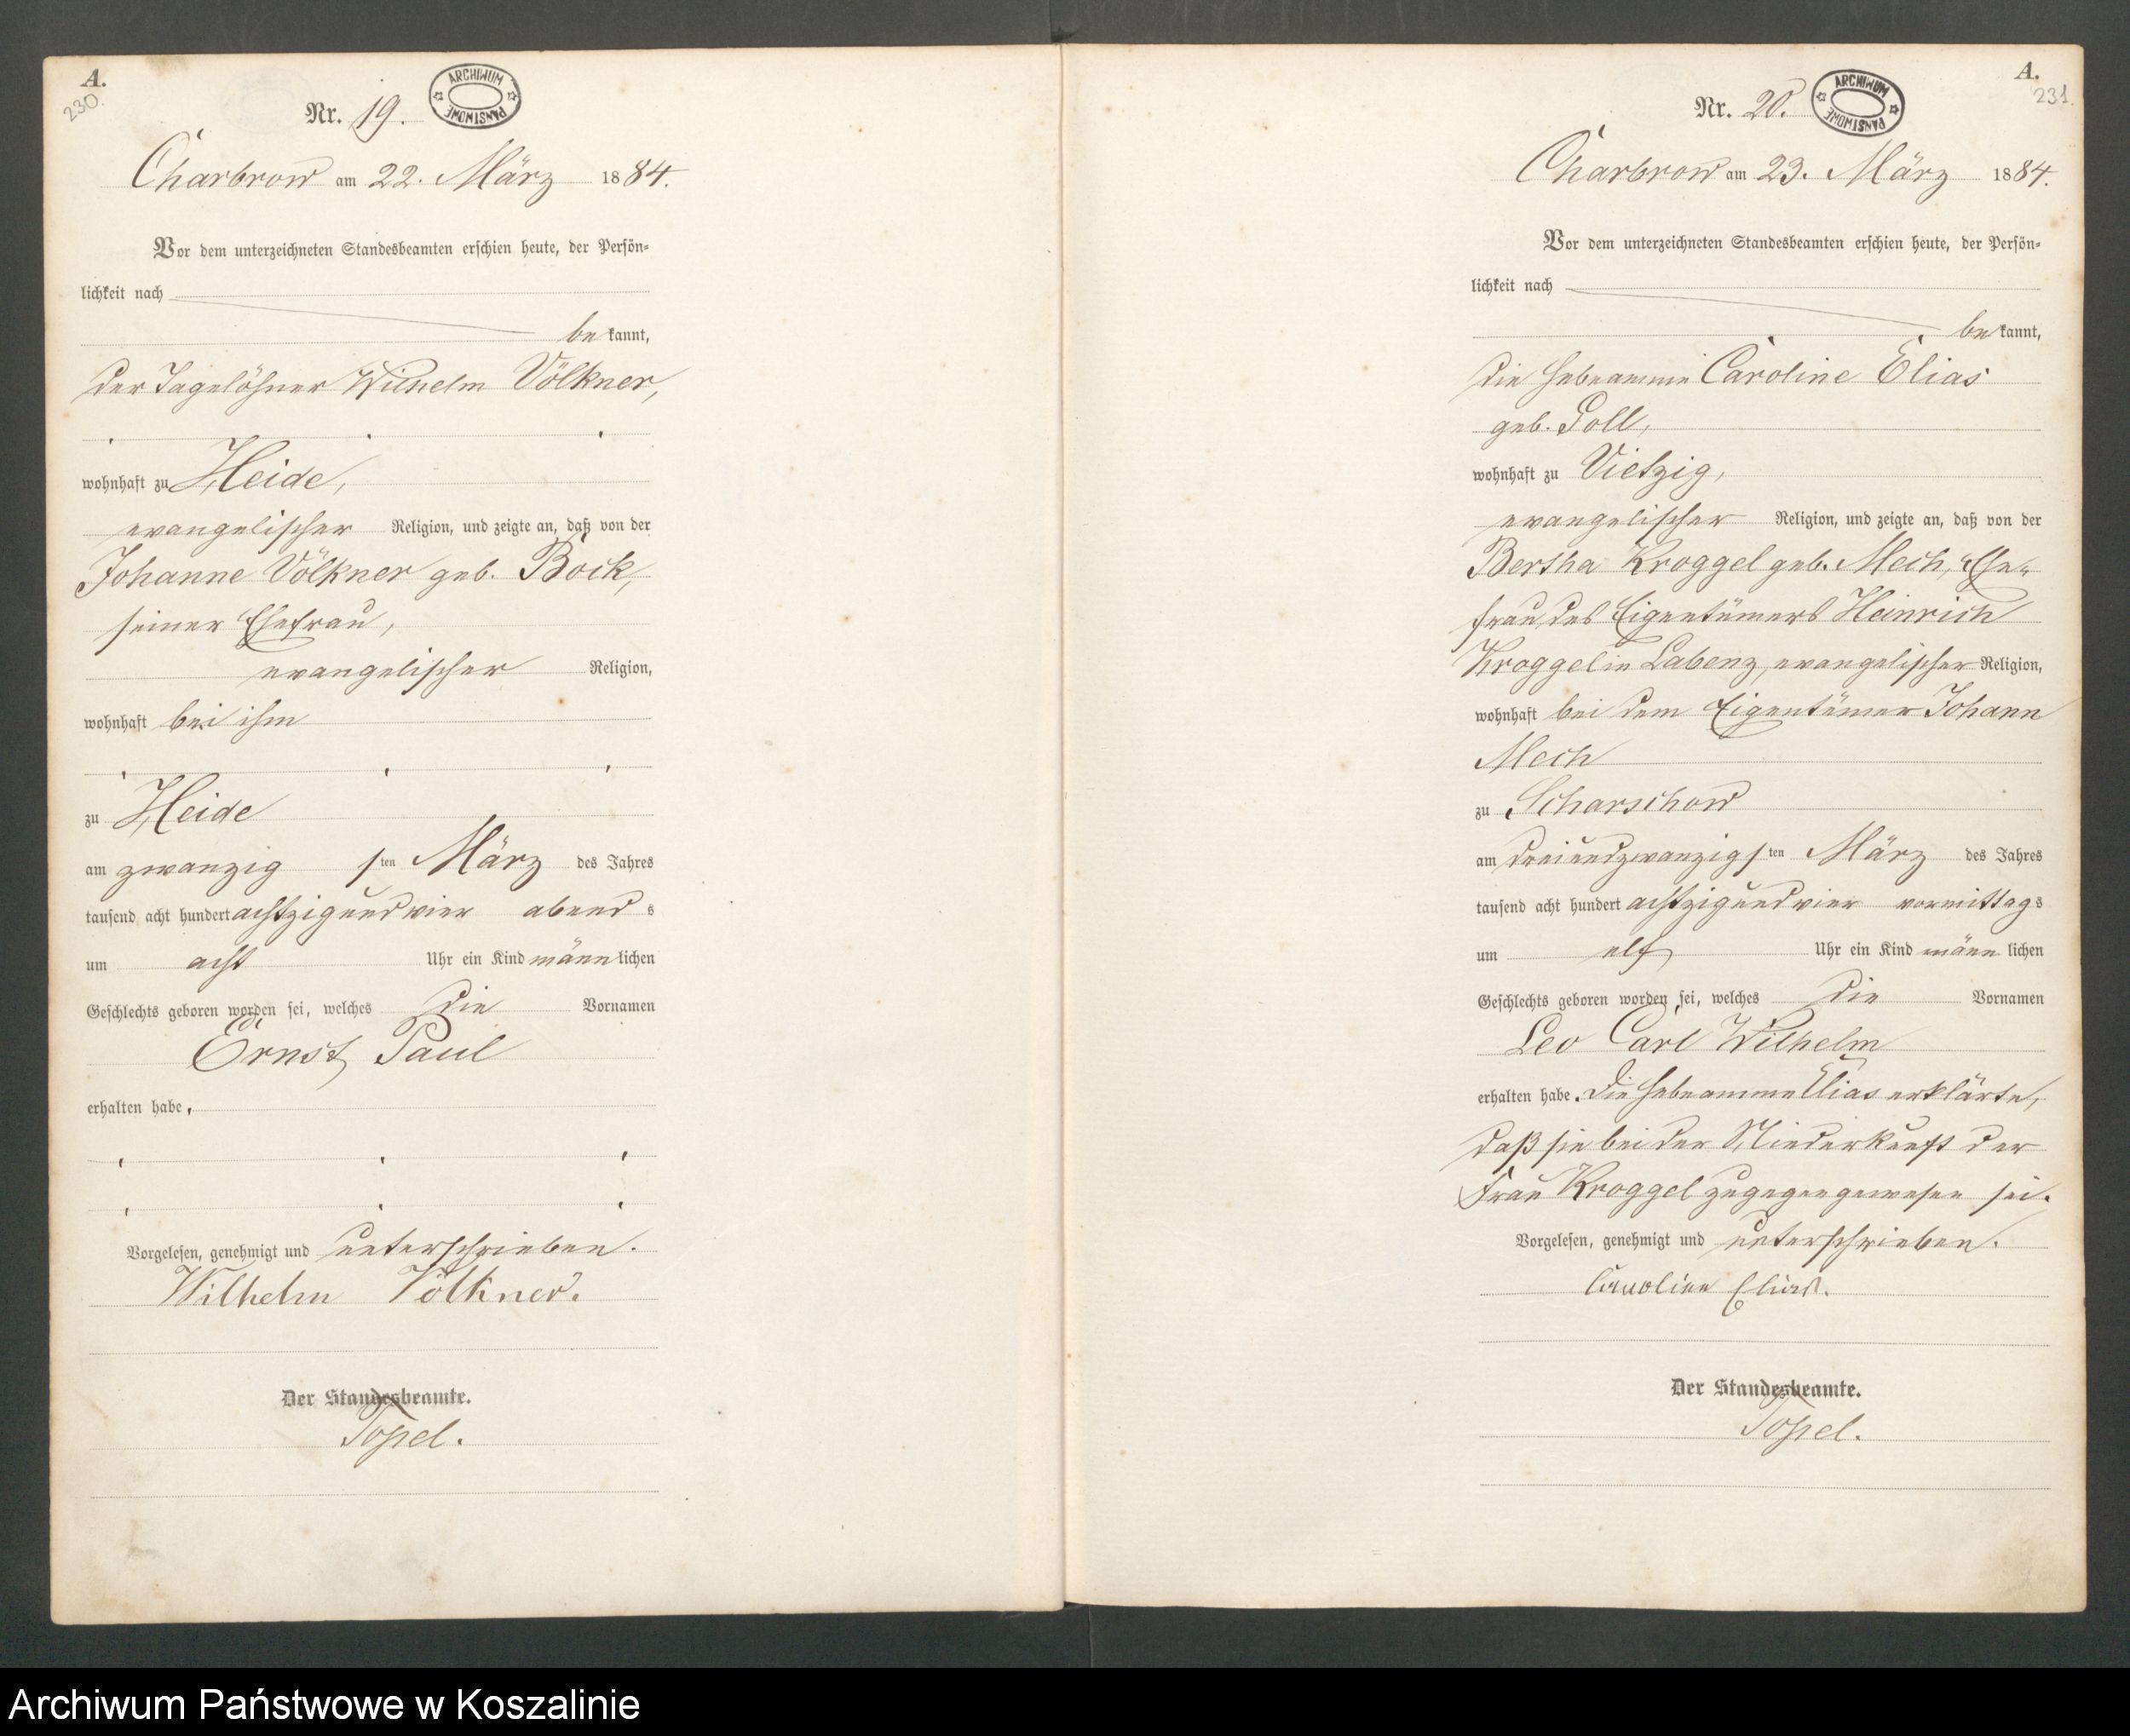 A.
230.
Nr. 19.
ARCHIWUM PAŃSTWOWE
Charbrow am 22. März 1884.
Vor dem unterzeichneten Standesbeamten erschien heute, der Persön-
lichkeit nach
be kannt,
der Tagelöhner Wilhelm Völkner,
wohnhaft zu Heide,
evangelischer Religion, und zeigte an, daß von der
Johanne Völkner geb. Bock,
seiner Ehefrau,
evangelischer Religion,
wohnhaft bei ihm
zu Heide
am zwanzig s ten März des Jahres
tausend acht hundert achtzig und vier abend s
um acht Uhr ein Kind männ lichen
Geschlechts geboren worden sei, welches die Vornamen
Ernst Paul
erhalten habe.
Vorgelesen, genehmigt und unterschrieben.
Wilhelm Völkner.
Der Standesbeamte.
Topel.
A.
231.
Nr. 20.
ARCHIWUM PAŃSTWOWE
Charbrow am 23. März 1884.
Vor dem unterzeichneten Standesbeamten erschien heute, der Persön-
lichkeit nach
be kannt,
die Hebeamme Caroline Elias
geb. Poll,
wohnhaft zu Vietzig,
evangelischer Religion, und zeigte an, daß von der
Bertha Kroggel geb. Mech, Ehe-
frau des Eigentümers Heinrich
Kroggel in Labenz, evangelischer Religion,
wohnhaft bei dem Eigentümer Johann
Mech
zu Scharschow
am dreiundzwanzig s ten März des Jahres
tausend acht hundert achtzig und vier vormittag s
um elf Uhr ein Kind männ lichen
Geschlechts geboren worden sei, welches die Vornamen
Leo Carl Wilhelm
erhalten habe. Die Hebeamme Elias erklärte,
daß sie bei der Niederkunft der
Frau Kroggel zugegen gewesen sei.
Vorgelesen, genehmigt und unterschrieben.
Caroline Elias.
Der Standesbeamte.
Topel.
Archiwum Państwowe w Koszalinie